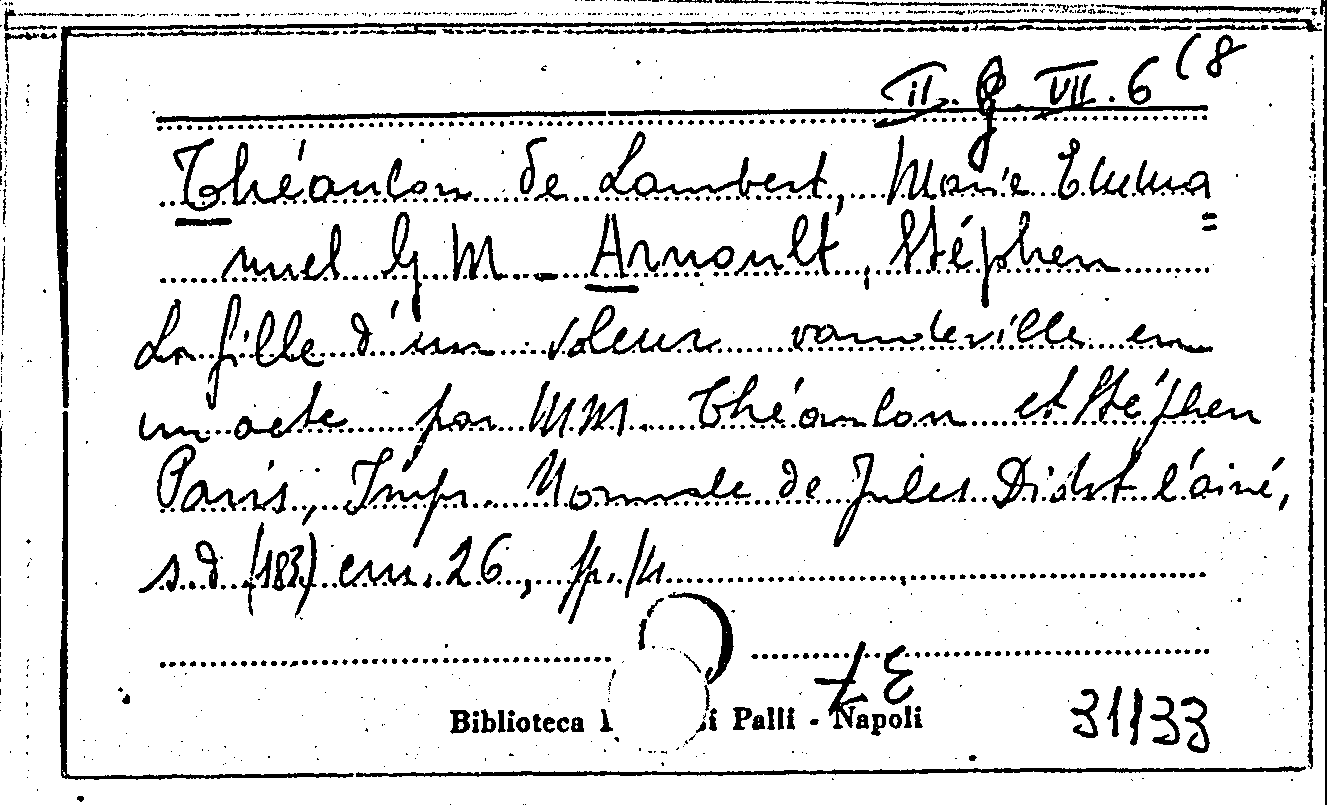 II. Q. VII. 6 (8
Théaulon de Lambert, Marie Emma=
nuel G M - Arnoult, Stéphen
La fille d'un voleur vaudeville en
un acte par MM. Théaulon et Stéphen
Paris, Impr. Normale de Jules Didot l'ainé,
s.d. (183) cm. 26, pp. 14
Biblioteca Palli - Napoli
31133